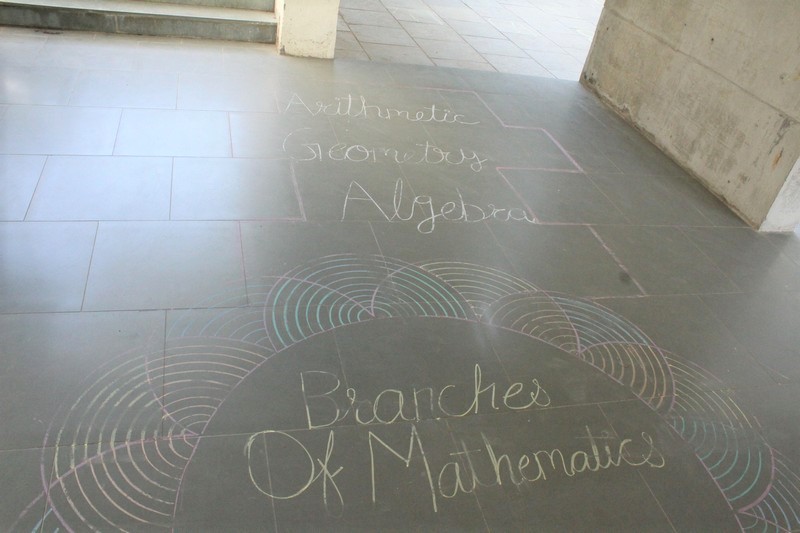 Arithmetic
Geometry
Algebra
Branches
Of Mathematics